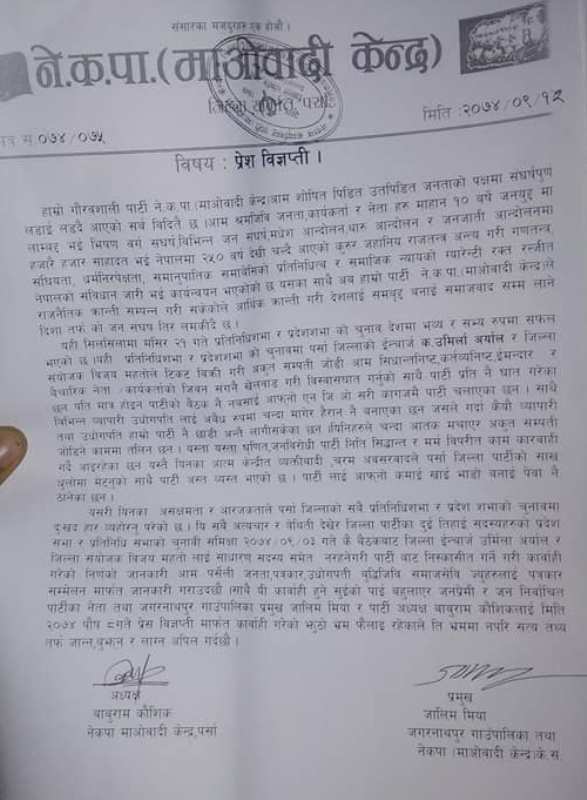 संसारका मजदुरहरु एक होऔं ।
ने.क.पा.(माओवादी केन्द्र)
जिल्ला पर्सा
मिति :२०७४/०९/१२
पत्र स.०७४/०७५
विषय : प्रेश विज्ञप्ती ।
हाम्रो गौरवशाली पार्टी ने.क.पा.(माओवादी केन्द्र)आम शोषित पिडित उतपिडित जनताको पक्षमा संघर्षपुण
लडाई लडदै आएको सर्व विदितै छ ।आम श्रमजिवि जनता,कार्यकर्ता र नेता हरु माहान १० बर्षे जनयुद्द मा
लाम्बद्द भई भिषण वर्ग संघर्ष,विभिन्न जन संघर्ष,मधेश आन्दोलन,थारु आन्दोलन र जनजाती आन्दोलनमा
हजारै हजार साहादत भई नेपालमा २५० वर्ष देखी चल्दै आएको कुरुर जहानिय राजतन्त्र अन्त्य गरी गणतन्त्र,
संधियता, धर्मनिरपेक्षता, समानुपातिक समावेसिको प्रतिनिधित्व र समाजिक न्यायको ग्यारेन्टी रक्त रन्जीत
नेपालको संविधान जारी भई कार्यन्वयन भएकोछ छ यसका साथै अब हाम्रो पार्टी ने.क.पा.(माओवादी केन्द्र)ले
राजनैतिक कान्ती सम्पन्न गरी सकेकोले आर्थिक कान्ती गरी देशलाई समबृद्द बनाई समाजवाद सम्म लाने
दिशा तर्फ को जन संघष तिर लमकीदै छ ।
यही सिलसिलामा मंसिर २१ गते प्रतिनिधिशभा र प्रदेशशभा को चुनाव देशमा भव्य र सभ्य रुपमा सफल
भएको छ ।यही प्रतिनिधिशभा र प्रदेशशभा को चुनावमा पर्सा जिल्लाको ईन्चार्ज क.उमिर्ला अर्याल र जिल्ला
संयोजक विजय महतोले टिकट बिक्री गरी अकुत सम्पती जोडी आम सिधान्तनिष्ट,कर्तव्यनिष्ट,ईमन्दार र
वैचारिक नेता /कार्यकर्ताको जिवन संगनै खेलवाड गरी विस्वासघात गर्नुको साथै पार्टी प्रति नै घात गरेका
छन यति मात्र होइन पार्टीको बैठक नै नबसाई आफ्नो एन जि ओ सरी कागजमै पार्टी चलाएका छन । साथै
विभिन्न व्यापारी उधोगपति लाई अवैध रुपमा चन्दा मागेर हैरान नै बनाएका छन जसले गर्दा कैयौ व्यापारी
तथा उधोगपति हाम्रो पार्टी नै छाडी अन्तै लागीसकेका छन ।यिनिहरुले चन्दा आतंक मचाएर अकुत सम्पती
जोडिने काममा तलिन छन । यस्ता यस्ता घृणित,जनबिरोधी पार्टी निति सिद्दान्त र मर्म विपरीत काम कारवाही
गर्दै आइरहेका छन यस्तै यिनका आत्म केन्द्रीत व्यक्तीवादी ,चरम अबसरवादले पर्सा जिल्ला पार्टीको साख
धुलोमा मेट्नुको साथै पार्टी अस्त व्यस्त भएको छ । पार्टी लाई आफ्नो कमाई खाई भाडो बनाई पेवा नै
ठानेका छन ।
यसरी यिनका असक्षमता र आरजकताले पर्सा जिल्लाको सबै प्रतिनिधिशभा र प्रदेश शभाको चुनावमा
दुःखद हार व्यहोरनु परेको छ । यि सबै अत्यचार र बेथिती देखेर जिल्ला पार्टीका दुई तिहाई सदस्यहरुको प्रदेश
सभा र प्रतिनिधि सभाको चुनावी समिक्षा २०७४/०९/०३ गते कै बैठकबाट जिल्ला ईन्चार्ज उर्मिला अर्याल र
जिल्ला संयोजक विजय महतो लाई साधारण सदस्य समेत नरहनेगरी पार्टी बाट निस्कासीत गर्ने गरी कार्वाही
गरेको निर्णको जानकारी आम पर्सेली जनता,पत्रकार,उधोगपती बुद्धिजिवि समाजसेवि ज्युहरुलाई पत्रकार
सम्मेलन मार्फत जानकारी गराउदछौं ।साथै यी कार्वाही हुने सुईको पाई बहुलाएर जनप्रेमी र जन निर्वाचित
पार्टीका नेता तथा जगरनाथपुर गाउंपालिका प्रमुख जालिम मिया र पार्टी अध्यक्ष बाबुराम कौशिकलाई मिति
२०७४ पौष ८गते प्रेस विज्ञप्ती मार्फत कार्वाही गरेको झुठो भ्रम फैलाइ रहेकाले ति भ्रममा नपरि सत्य तथ्य
तर्फ जान्न,बुझ्न र लाग्न अपिल गर्दछौं ।
अध्यक्ष
बाबुराम कौशिक
नेकपा माओवादी केन्द्र,पर्सा
प्रमुख
जालिम मिया
जगरनाथपुर गाउंपालिका तथा
नेकपा (माओवादी केन्द्र)के.स.